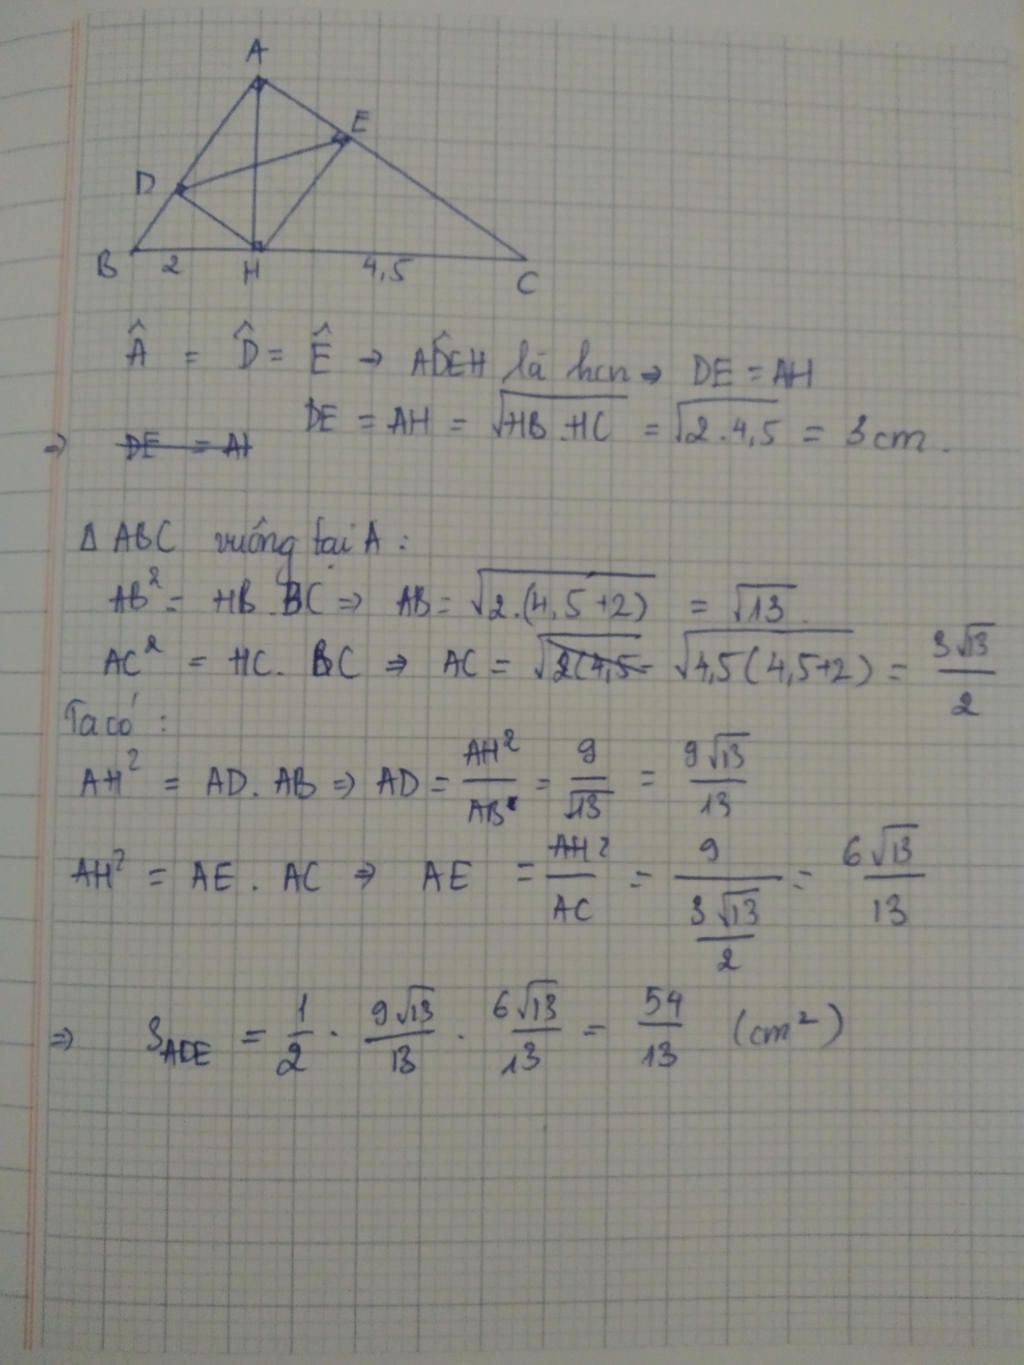 A
E
D
B 2 H 4,5 C
Â = D̂ = Ê => ADEH là hcn => DE = AH
DE = AH = √HB.HC = √2.4,5 = 3cm.
=> DE = AH
Δ ABC vuông tại A :
AB² = HB.BC => AB = √2.(4,5+2) = √13.
AC² = HC.BC => AC = √2(4,5 = √4,5(4,5+2) = 3√13/2
Ta có :
AH² = AD.AB => AD = AH²/AB = 9/√13 = 9√13/13
AH² = AE.AC => AE = AH²/AC = 9/(3√13/2) = 6√13/13
=> S_ADE = 1/2 . 9√13/13 . 6√13/13 = 54/13 (cm²)